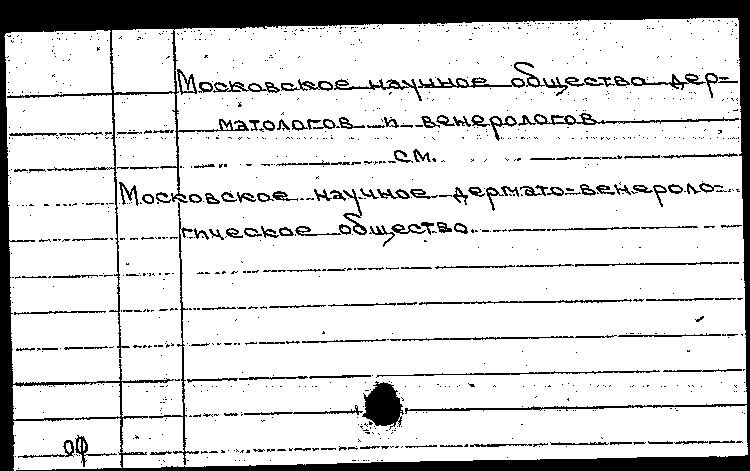 Московское научное общество дер-
матологов и венерологов
см.
Московское научное дермато-венероло-
гическое общество.
оф